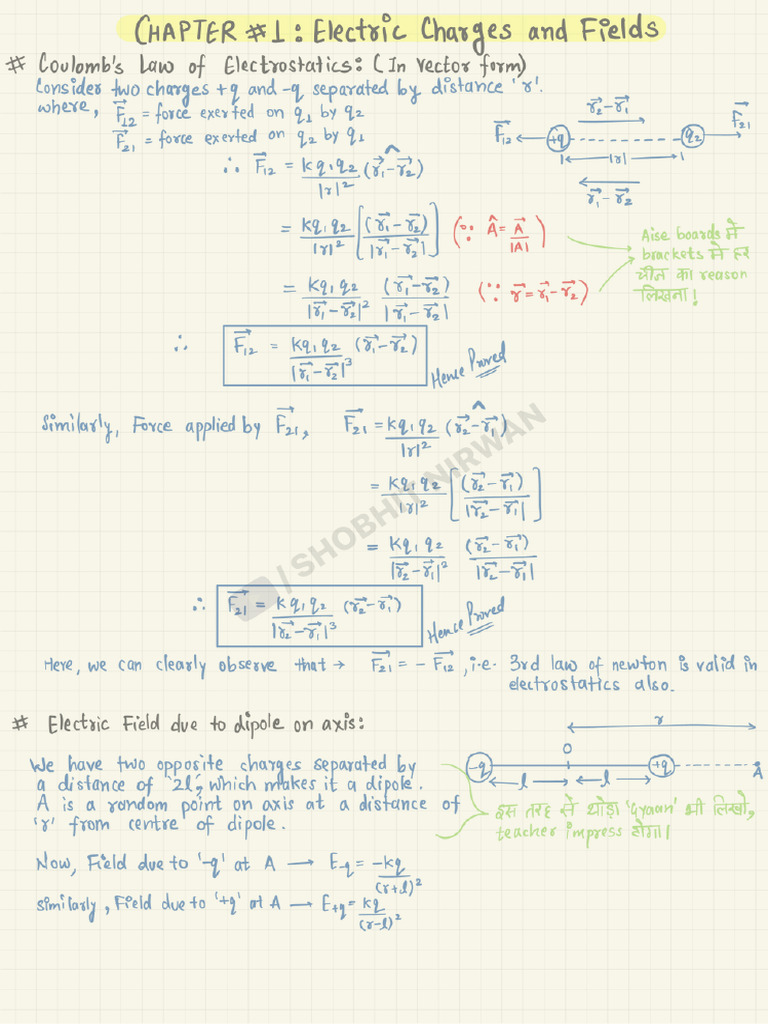 CHAPTER #1: Electric Charges and Fields
# Coulomb's Law of Electrostatics: (In vector form)
Consider two charges +q and -q separated by distance 'r'.
where, F⃗₁₂ = force exerted on q₁ by q₂
F⃗₂₁ = force exerted on q₂ by q₁
r⃗₂-r⃗₁
F⃗₁₂ +q q₂ F⃗₂₁
|r|
r⃗₁-r⃗₂
∴ F⃗₁₂ = kq₁q₂/|r|² (r⃗₁-r⃗₂)^
= kq₁q₂/|r|² [(r⃗₁-r⃗₂)/|r⃗₁-r⃗₂|] (∵ Â = A⃗/|A|)
= kq₁q₂/|r⃗₁-r⃗₂|² (r⃗₁-r⃗₂)/|r⃗₁-r⃗₂| (∵ r⃗ = r⃗₁-r⃗₂)
Aise boards में
brackets में हर
चीज का reason
लिखना!
∴ F⃗₁₂ = kq₁q₂/|r⃗₁-r⃗₂|³ (r⃗₁-r⃗₂)
Hence Proved
Similarly, Force applied by F⃗₂₁, F⃗₂₁ = kq₁q₂/|r|² (r⃗₂-r⃗₁)^
= kq₁q₂/|r|² [(r⃗₂-r⃗₁)/|r⃗₂-r⃗₁|]
= kq₁q₂/|r⃗₂-r⃗₁|² (r⃗₂-r⃗₁)/|r⃗₂-r⃗₁|
∴ F⃗₂₁ = kq₁q₂/|r⃗₂-r⃗₁|³ (r⃗₂-r⃗₁)
Hence Proved
/SHOBHIT NIRWAN
Here, we can clearly observe that → F⃗₂₁ = - F⃗₁₂, i.e. 3rd law of newton is valid in
electrostatics also.
# Electric Field due to dipole on axis:
r
-q O +q A
l l
We have two opposite charges separated by
a distance of '2l', which makes it a dipole.
A is a random point on axis at a distance of
'r' from centre of dipole.
इस तरह से थोड़ा 'Gyaan' भी लिखो,
teacher impress होगा!
Now, Field due to '-q' at A → E-q = -kq/(r+l)²
similarly, Field due to '+q' at A → E+q = kq/(r-l)²